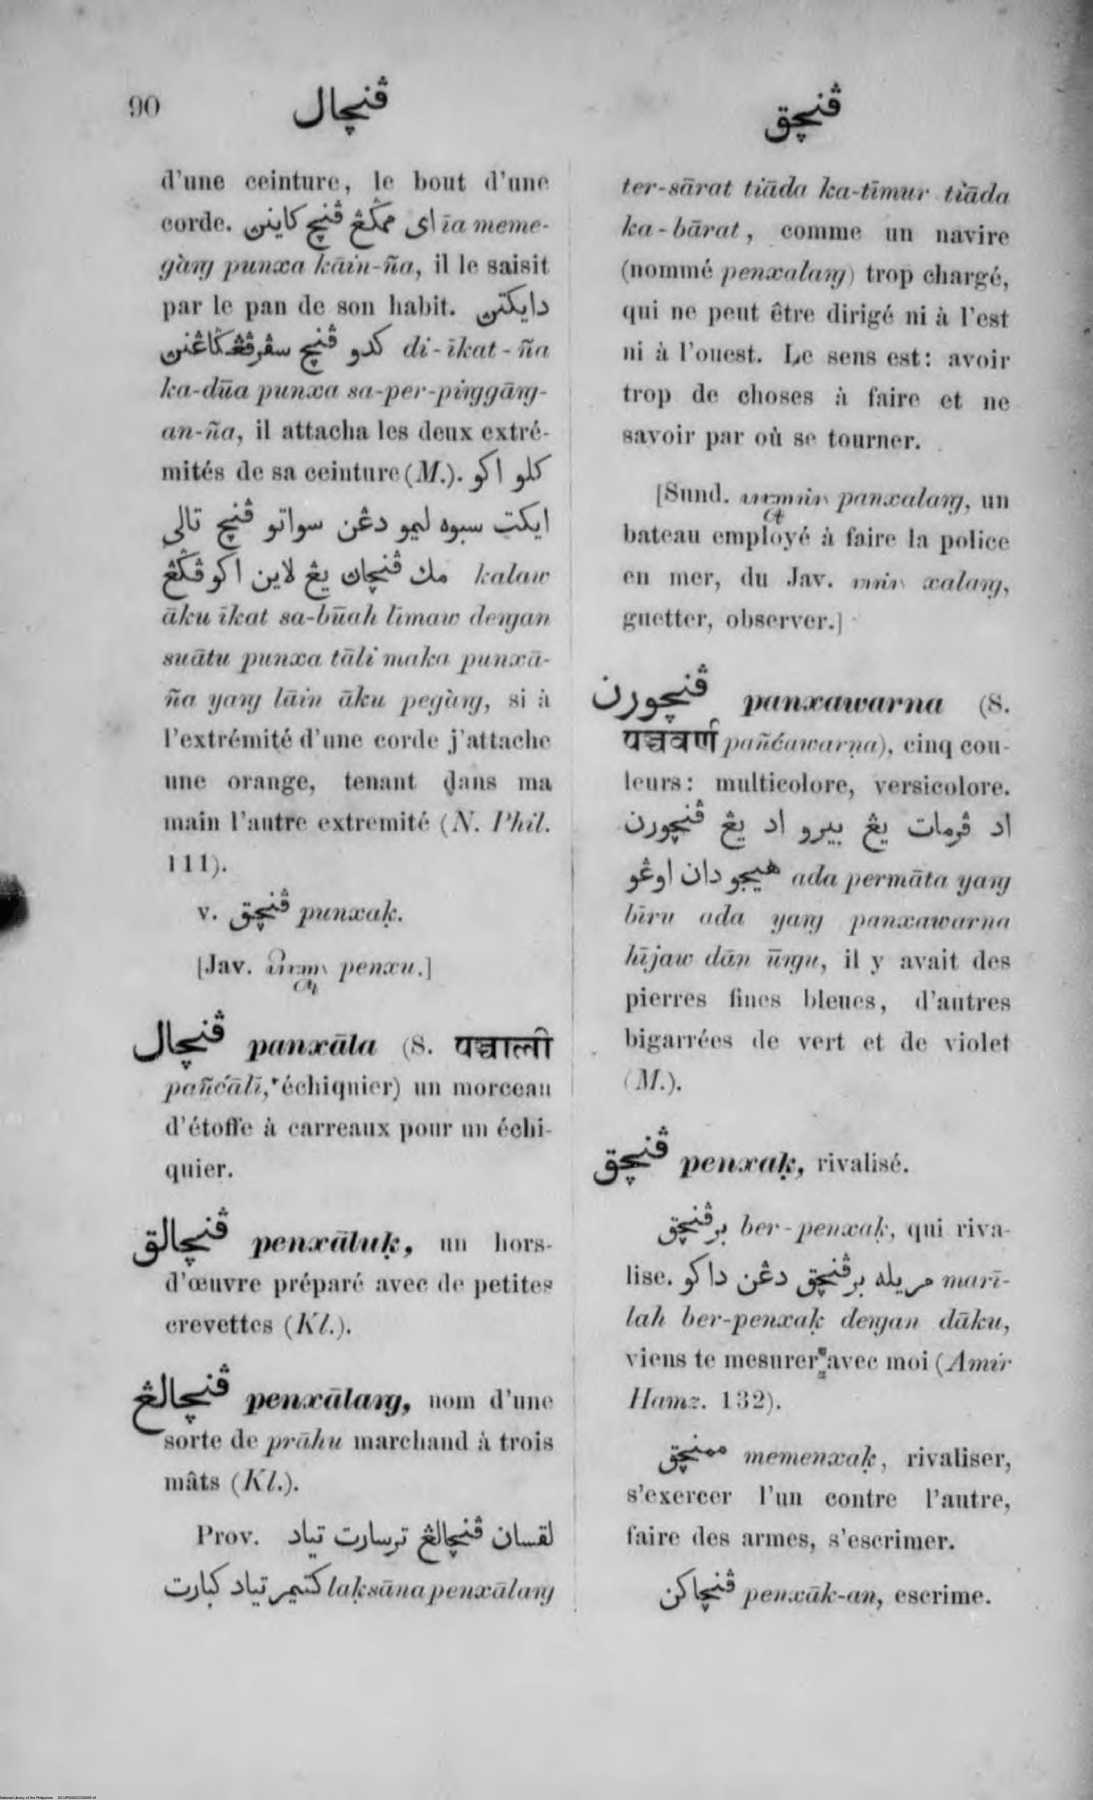 90
ڤنچال
ڤنچق
d'une ceinture, le bout d'une
corde. اى ممڬڠ ڤنچ كاينن īa meme-
gàng punxa kāin-ña, il le saisit
par le pan de son habit. دايكتن
كدو ڤنچ سڤرڤڠڬاڠنن di-īkat-ña
ka-dūa punxa sa-per-pinggāng-
an-ña, il attacha les deux extré-
mités de sa ceinture (M.). كلو اكو
ايكت سبوه ليمو دڠن سواتو ڤنچ تالي
مك ڤنچان يڠ لاين اكو ڤڬڠ kalaw
āku īkat sa-būah līmaw dengan
suātu punxa tāli maka punxā-
ña yang lāin āku pegàng, si à
l'extrémité d'une corde j'attache
une orange, tenant dans ma
main l'autre extremité (N. Phil.
111).
v. ڤنچق punxaḳ.
[Jav. penxu.]
ڤنچال panxāla (S. पञ्चाली
pañćālī, échiquier) un morceau
d'étoffe à carreaux pour un échi-
quier.
ڤنچالق penxāluḳ, un hors-
d'œuvre préparé avec de petites
crevettes (Kl.).
ڤنچالڠ penxālang, nom d'une
sorte de prāhu marchand à trois
mâts (Kl.).
Prov. لقسان ڤنچالڠ ترسارت تياد
كتيمر تياد كبارت laḳsāna penxālang
ter-sārat tiāda ka-tīmur tiāda
ka-bārat, comme un navire
(nommé penxalang) trop chargé,
qui ne peut être dirigé ni à l'est
ni à l'ouest. Le sens est: avoir
trop de choses à faire et ne
savoir par où se tourner.
[Sund. panxalang, un
bateau employé à faire la police
en mer, du Jav. xalang,
guetter, observer.]
ڤنچورن panxawarna (S.
पञ्चवर्ण pañćawarṇa), cinq cou-
leurs: multicolore, versicolore.
اد ڤرمات يڠ بيرو اد يڠ ڤنچورن
هيجو دان اوڠو ada permāta yang
bīru ada yang panxawarna
hījaw dān ūngu, il y avait des
pierres fines bleues, d'autres
bigarrées de vert et de violet
(M.).
ڤنچق penxaḳ, rivalisé.
برڤنچق ber-penxaḳ, qui riva-
lise. مريله برڤنچق دڠن داكو marī-
lah ber-penxaḳ dengan dāku,
viens te mesurer avec moi (Amir
Hamz. 132).
ممنچق memenxaḳ, rivaliser,
s'exercer l'un contre l'autre,
faire des armes, s'escrimer.
ڤنچاكن penxāk-an, escrime.